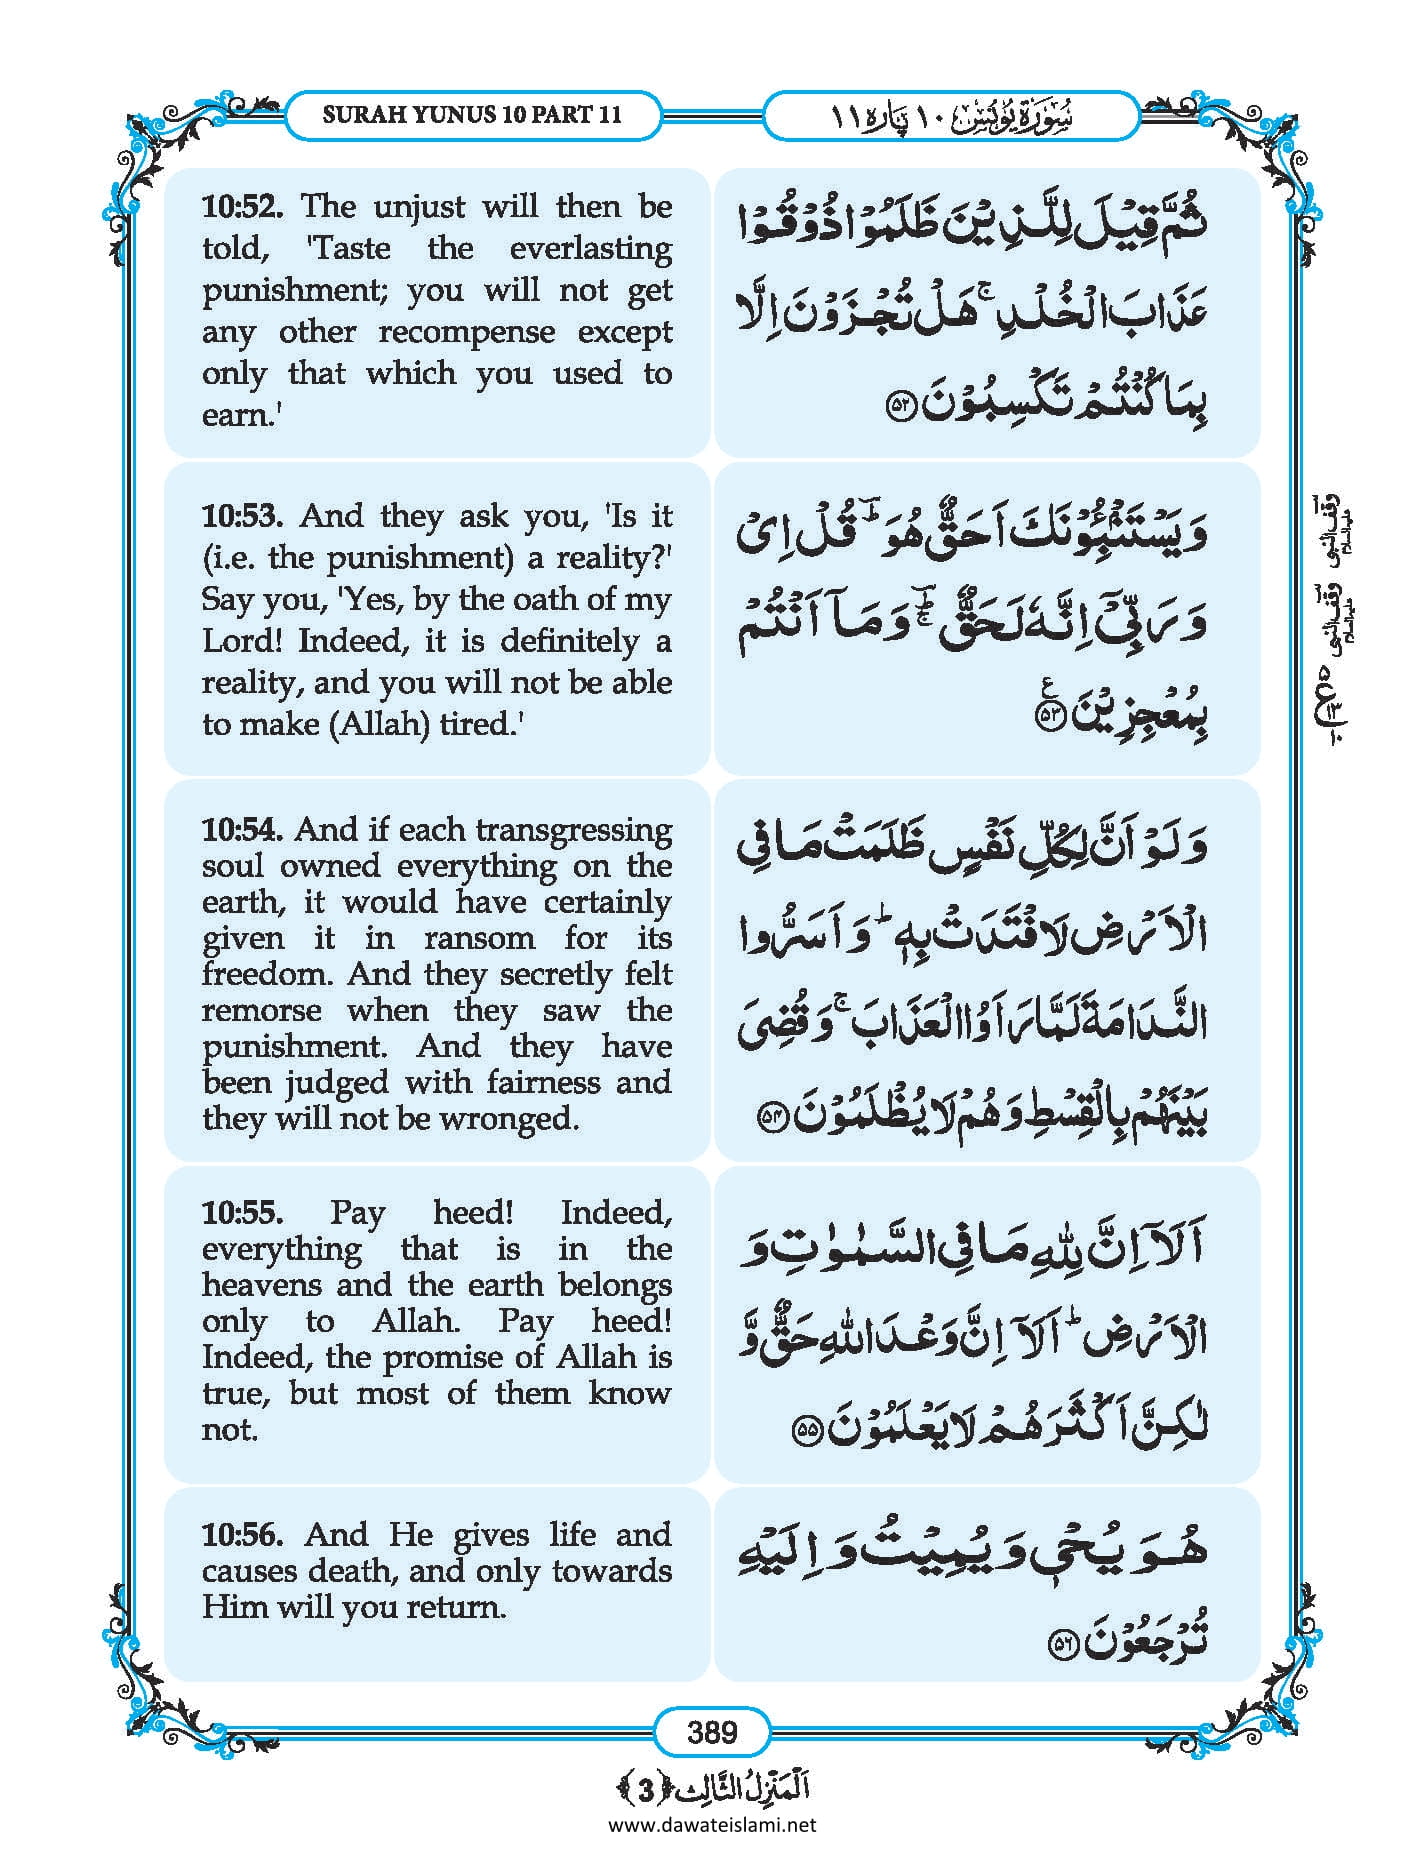 SURAH YUNUS 10 PART 11
سُوْرَۃُ یُوْنُسْ ١٠ پَارہ ١١
10:52. The unjust will then be
told, 'Taste the everlasting
punishment; you will not get
any other recompense except
only that which you used to
earn.'
ثُمَّ قِیۡلَ لِلَّذِیۡنَ ظَلَمُوۡا ذُوۡقُوۡا
عَذَابَ الْخُلْدِ ۚ هَلْ تُجْزَوْنَ اِلَّا
بِمَا كُنْتُمْ تَكْسِبُوْنَ ﴿۵۲﴾
10:53. And they ask you, 'Is it
(i.e. the punishment) a reality?'
Say you, 'Yes, by the oath of my
Lord! Indeed, it is definitely a
reality, and you will not be able
to make (Allah) tired.'
وَ یَسْتَنْۢبِـُٔوْنَكَ اَحَقٌّ هُوَ ؕ قُلْ اِیْ
وَ رَبِّیْۤ اِنَّهٗ لَحَقٌّ ۚؕ وَ مَاۤ اَنْتُمْ
بِمُعْجِزِیْنَ ﴿۵۳﴾ ع
وقف النبی علیہ السلام
وقف النبی علیہ السلام
10:54. And if each transgressing
soul owned everything on the
earth, it would have certainly
given it in ransom for its
freedom. And they secretly felt
remorse when they saw the
punishment. And they have
been judged with fairness and
they will not be wronged.
وَ لَوْ اَنَّ لِكُلِّ نَفْسٍ ظَلَمَتْ مَا فِی
الْاَرْضِ لَافْتَدَتْ بِهٖ ؕ وَ اَسَرُّوا
النَّدَامَةَ لَمَّا رَاَوُا الْعَذَابَ ۚ وَ قُضِیَ
بَیْنَهُمْ بِالْقِسْطِ وَ هُمْ لَا یُظْلَمُوْنَ ﴿۵۴﴾
10:55. Pay heed! Indeed,
everything that is in the
heavens and the earth belongs
only to Allah. Pay heed!
Indeed, the promise of Allah is
true, but most of them know
not.
اَلَاۤ اِنَّ لِلّٰهِ مَا فِی السَّمٰوٰتِ وَ
الْاَرْضِ ؕ اَلَاۤ اِنَّ وَعْدَ اللّٰهِ حَقٌّ وَّ
لٰكِنَّ اَكْثَرَهُمْ لَا یَعْلَمُوْنَ ﴿۵۵﴾
10:56. And He gives life and
causes death, and only towards
Him will you return.
هُوَ یُحْیٖ وَ یُمِیْتُ وَ اِلَیْهِ
تُرْجَعُوْنَ ﴿۵۶﴾
389
اَلْمَنْزِلُ الثَّالِث ﴿3﴾
www.dawateislami.net